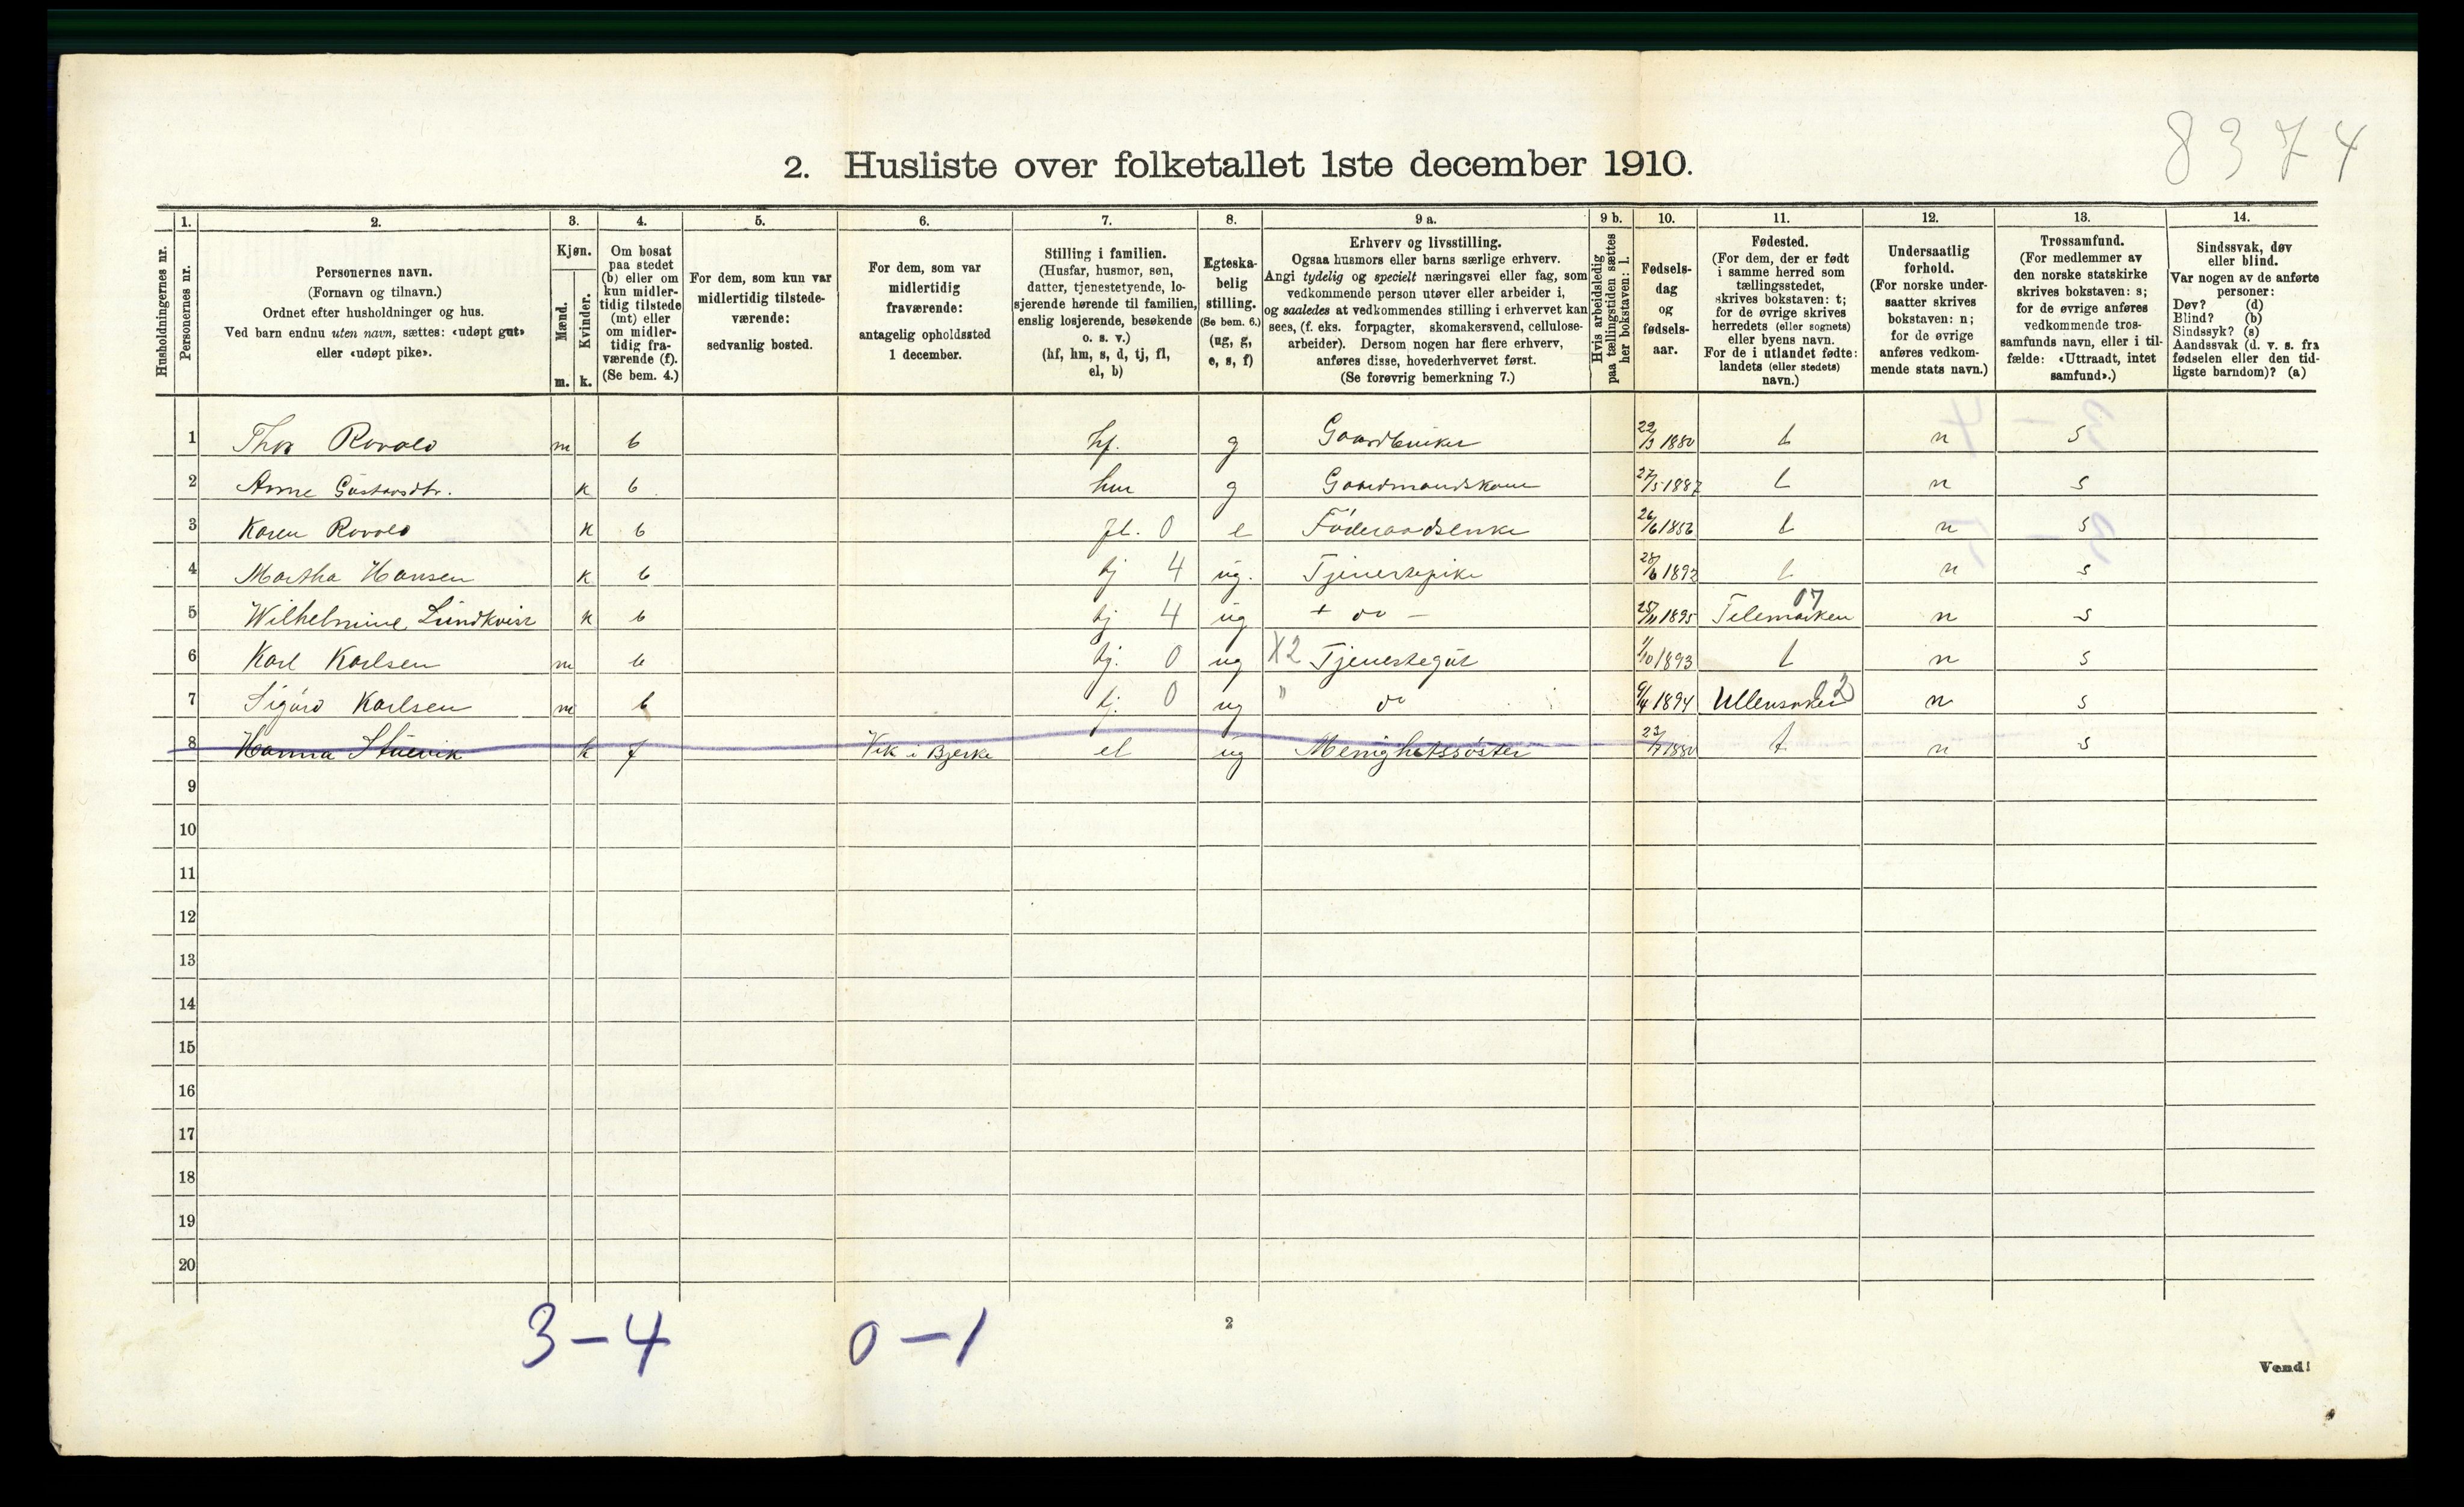 8374
2. Husliste over folketallet 1ste december 1910.
1. 2. 3. 4. 5. 6. 7. 8. 9 a. 9 b. 10. 11. 12. 13. 14.
Husholdningernes nr.
Personernes nr.
Personernes navn.
(Fornavn og tilnavn.)
Ordnet efter husholdninger og hus.
Ved barn endnu uten navn, sættes: «udøpt gut»
eller «udøpt pike».
Kjøn.
Mænd.
m.
Kvinder.
k.
Om bosat
paa stedet
(b) eller om
kun midler-
tidig tilstede
(mt) eller
om midler-
tidig fra-
værende (f).
(Se bem. 4.)
For dem, som kun var
midlertidig tilstede-
værende:
sedvanlig bosted.
For dem, som var
midlertidig
fraværende:
antagelig opholdssted
1 december.
Stilling i familien.
(Husfar, husmor, søn,
datter, tjenestetyende, lo-
sjerende hørende til familien,
enslig losjerende, besøkende
o. s. v.)
(hf, hm, s, d, tj, fl,
el, b)
Egteska-
belig
stilling.
(Se bem. 6.)
(ug, g,
e, s, f)
Erhverv og livsstilling.
Ogsaa husmors eller barns særlige erhverv.
Angi tydelig og specielt næringsvei eller fag, som
vedkommende person utøver eller arbeider i,
og saaledes at vedkommendes stilling i erhvervet kan
sees, (f. eks. forpagter, skomakersvend, cellulose-
arbeider). Dersom nogen har flere erhverv,
anføres disse, hovederhvervet først.
(Se forøvrig bemerkning 7.)
Hvis arbeidsledig
paa tællingstiden sættes
her bokstaven: l.
Fødsels-
dag
og
fødsels-
aar.
Fødested.
(For dem, der er født
i samme herred som
tællingsstedet,
skrives bokstaven: t;
for de øvrige skrives
herredets (eller sognets)
eller byens navn.
For de i utlandet fødte:
landets (eller stedets)
navn.)
Undersaatlig
forhold.
(For norske under-
saatter skrives
bokstaven: n;
for de øvrige
anføres vedkom-
mende stats navn.)
Trossamfund.
(For medlemmer av
den norske statskirke
skrives bokstaven: s;
for de øvrige anføres
vedkommende tros-
samfunds navn, eller i til-
fælde: «Uttraadt, intet
samfund».)
Sindssvak, døv
eller blind.
Var nogen av de anførte
personer:
Døv? (d)
Blind? (b)
Sindssyk? (s)
Aandssvak (d. v. s. fra
fødselen eller den tid-
ligste barndom)? (a)
1 Thor Rovold m b hf. g Gaardbruker 22/3 1880 t n s
2 Anne Gustavsdtr. k b hm g Gaardmandskone 27/5 1887 t n s
3 Karen Rovold k b fl. 0 e Föderaadsenke 26/6 1856 t n s
4 Martha Hansen k b tj 4 ug. Tjenestepike 28/6 1892 t n s
5 Wilhelmine Lundkvist k b tj 4 ug + do - 25/11 1895 Telemarken 07 n s
6 Karl Karlsen m b tj. 0 ug X2 Tjenestegut 1/10 1893 t n s
7 Sigurd Karlsen m b tj. 0 ug " do 9/4 1894 Ullensaker 02 n s
8 Hanna Stuevik k f Vik i Bjerke el ug Menighetssöster 23/7 1880 t. n s
9
10
11
12
13
14
15
16
17
18
19
20
3 – 4 0 – 1
2
Vend!